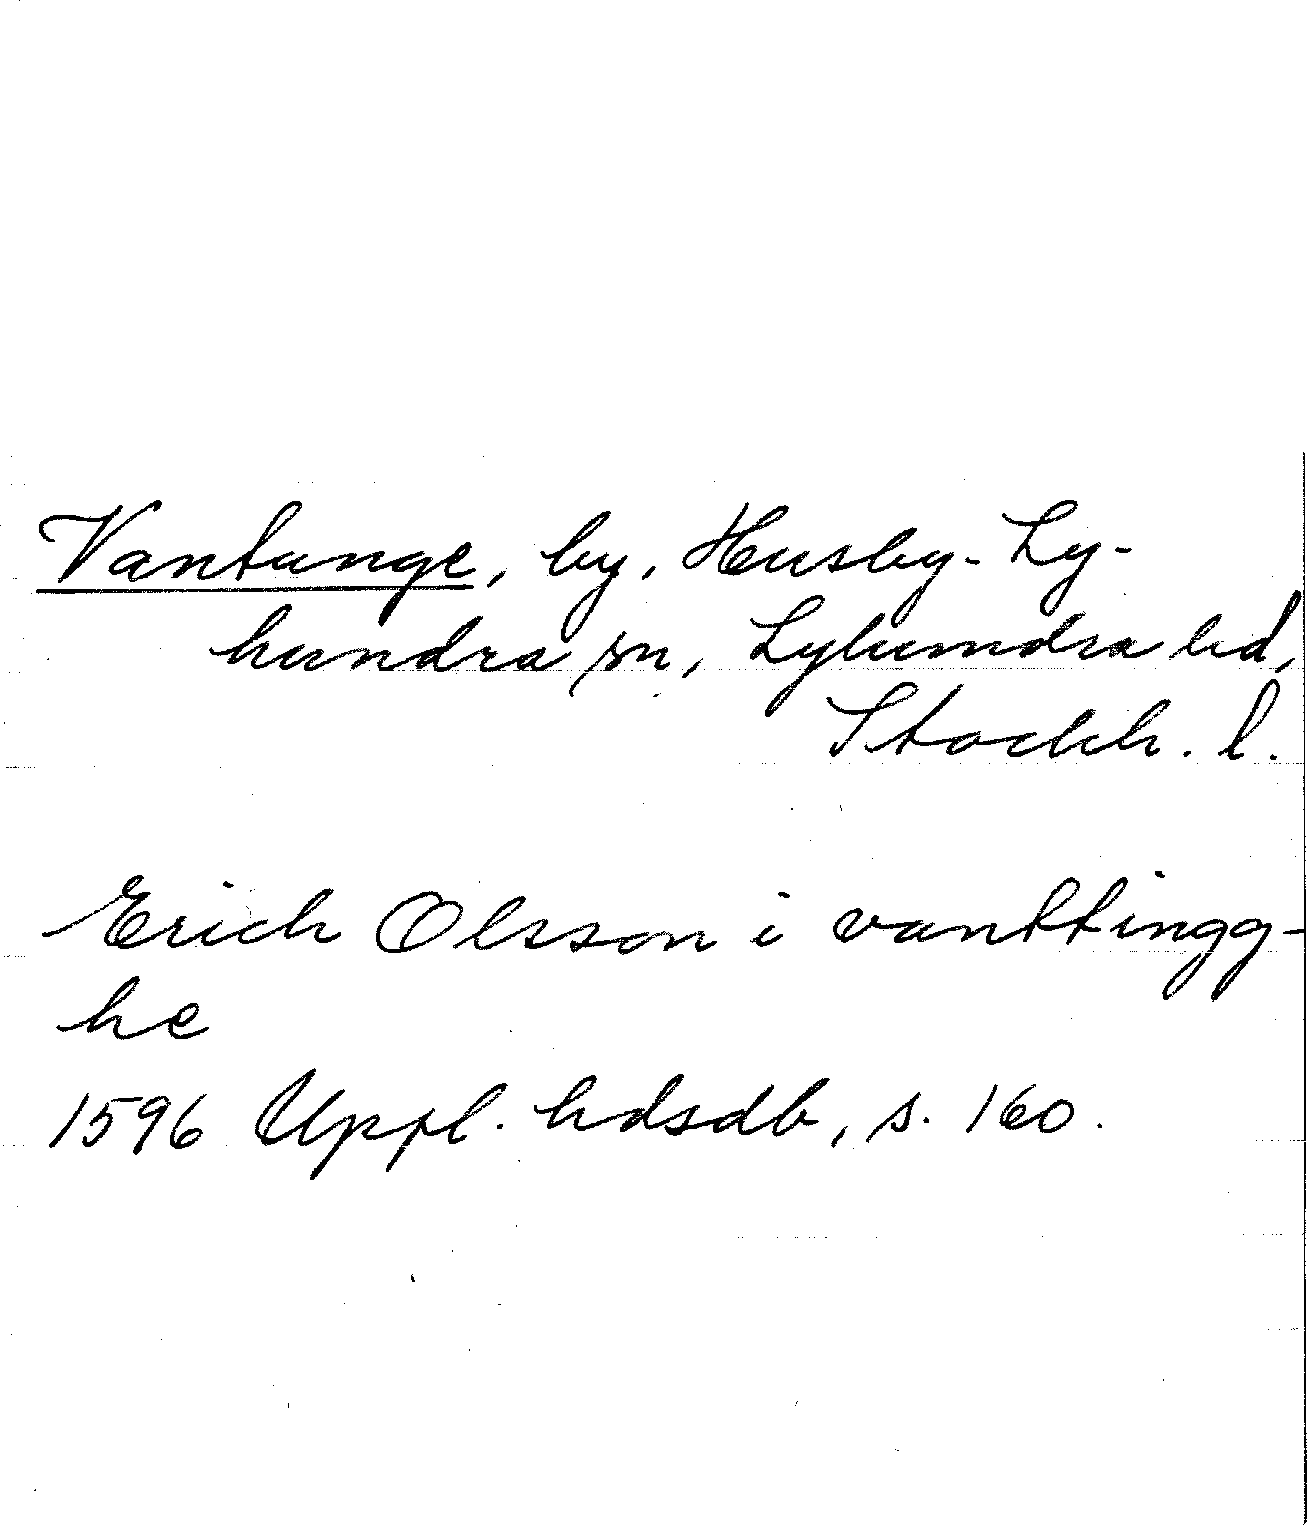 Vantunge, by, Husby-Ly-
hundra sn, Lyhundra hd,
Stockh. l.
Erich Olsson i vanttingg-
he
1596 Uppl. hdsdb, s. 160.